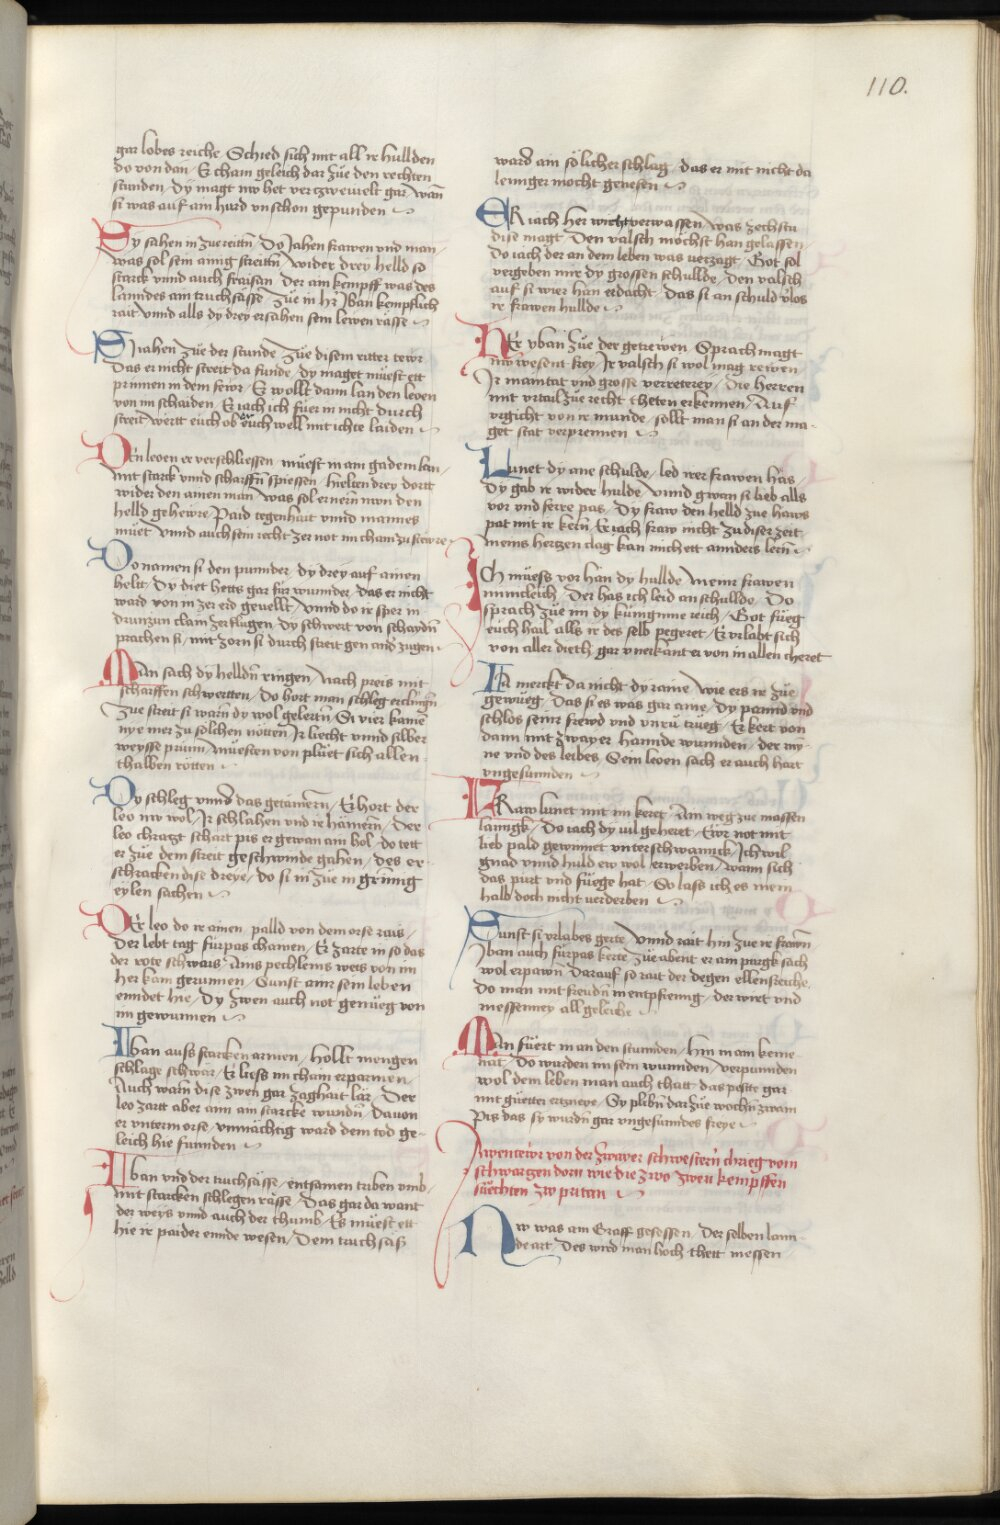 110.
gar lobes reiche / Schied sich mit all ir hullden
do von dan / Er cham geleich dar züe den rechten
stunden / Dy magt nw het verczweiuelt gar / wann
si was auf ain hurd vnschon gepunden
Sy sahen in zue reittn̄ / Do Jahen frawen vnd man /
was sol sein ainig streittn̄ / wider drey helld so
starck vnnd auch fraisan / Der am kempff was des
lanndes ain truchsässe / Züe im hr̄ Iban kempflich
rait vnnd alls dy drey ersahen sein lewen rässe
Si iahen züe der stunde / Züe disem ritter tewr
Das er nicht streit da funde / dy maget müest ett
prinnen in dem fewr / Er wollt dann lan den leoen
von im schaiden / Er iach ich füer in nicht durch
streit wertt euch ob er euch well mit ichte laiden
Den leoen er verschliessen / müest in ain gadem lan /
mit starck vnnd scharffn̄ spiessen / hielten drey dortt
wider den ainen man / was sol ernern nwn den
helld gehewre / Paid tegenhait vnnd mannes
müet / vnnd auch sein recht zer not im cham zu stewre
Do namen si den punider / dy drey auf ainen
hellt / Dy diet hetts gar für wunnder / das er nicht
ward von in zer erd geuellt / Vnnd do ir sper in
drunzun clain zerflugen / Dy schwert von schaydn̄
prachen si / mit zorn si durch streit gen and̄ zugen
Man sach dy helldn̄ ringen / nach preis mit
scharffen schwertten / Do hort man schleg erclingn̄
Zue streit si warn̄ dy wol gelertn̄ / Si vier kamē
nye mer zu solchen nötten / Ir liecht vnnd silber
weysse prünn / müesten von plüet sich allen
thalben rötten
Dy schleg vnnd das getümern̄ / Er hort der
leo nw wol / Ir schlahen vnd ir hämern̄ / Der
leo chratzt schart pis er gewan ain hol / do tett
er züe dem streit geschwinde gahen / des er
schracken dise dreye / do si in zue in grimig
eylen sachen
Der leo do ir ainen / palld von dem orse rais /
Der lebt tag fürpas chainen / Er zarte in so das
der rote schwais / Ains pechleins weis von im
her kam gerunnen / Sunst ainr sein leben
enndet hie / Dy zwen auch not genüeg von
im gewunnen
Iban auss starcken armen / hollt mengen
schlage schwär / Er liess im cham erparmen /
Auch warn̄ dise zwen gar zaghait lär / Der
leo zartt aber ain ain starcke wundn̄ / Dauon
er vnterm orse / vnmächtig ward dem tod ge-
leich hie funnden
Iban vnd der truchsässe / entsamen triben vmb /
mit starcken schlegen rässe / Das gar da want
der weys vnnd auch der thumb / Es müest ett
hie ir paider ennde wesen / Dem truchsäss
ward ain sölicher schlag / das er mit nicht da
lenniger mocht genesen
Er iach her wicht verwassen / was zechstu
dise magt / Den valsch möchst han gelassen /
Do iach der an dem leben was verzagt / Got sol
vergeben mir dy grossen schullde / Den valsch
auf si wier han erdacht / Das si an schuld v̄los
ir frawen hullde
Her yban züe der getrewen / Sprach magt
nw wesent frey / Ir valsch si wol mag rewen /
Ir maintat vnd grosse verreterey / Die herren
mit vrtail züe recht theten erkennen / Auf
vrgicht von ir munde / sollt man si an der ma-
get stat verprennen
Lunet dy ane schulde / led irer frawen has /
Dy gab ir wider hulde / Vnnd gwan si lieb alls
vor vnd ferre pas / Dy fraw den helld zue haws
pat mit ir kern̄ / Er iach fraw nicht zu diser zeit /
meins hertzen clag kan mich ett annders lern̄
Ich müess vor han dy hullde / meinr frawen
minnicleich / Der has ich leid an schullde / Do
sprach züe im dy küniginne reich / Got füeg
euch hail alls ir des selb pegeret / Er vrlabt sich
von aller dieth / gar vnerkant er von in allen cheret
Ia merckt da nicht dy raine / wie ers ir züe
gewüeg / Das si es was gar aine / Dy pannd vnd
schlos seinr frewd vnd vnrü trueg / Er kert von
dann mit zwayer hannde wunnden / der my-
ne vnd des leibes / Sein leoen sach er auch hart
vngesunnden
Fraw lunet mit im keret / Ain weg zue massen
lanngk / Do iach dy vil geheret / Ewr not mit
lieb pald gewinnet vnterschwannck / Ich wil
gnad vnnd huld ew wol erwerben / wann sich
das purt vnd füege hat / So lass ich es mein
halb doch nicht verderben
Sunst si vrlabes gerte / Vnnd rait hin zue ir frawn̄
Iban auch fürpas kerte / Züe abent er ain purgk sach
wol erpawn̄ / Darauf so rait der degen ellensreiche,
Do man mit freudn̄ in entpfienng / der wirt vnd
messenney all geleiche
Man füert in an den stunnden / hin in ain keme-
nat / Do wurden im sein wunnden / verpunnden
wol dem leben man auch thatt / das peste gar
mit güetter ertzneye / Sy plibn̄ dar züe wochn̄ zwain
Pis das sy wurdn̄ gar vngesunndes freye
Awenteẅr von der zwayer schwestern̄ chrieg vom
schwarzen dorn wie die zwo zwen kempffen
süechten zw prttan
Nw was ain Graff gesessen / Der selben lann-
de art / Des wird man hoch thett messen